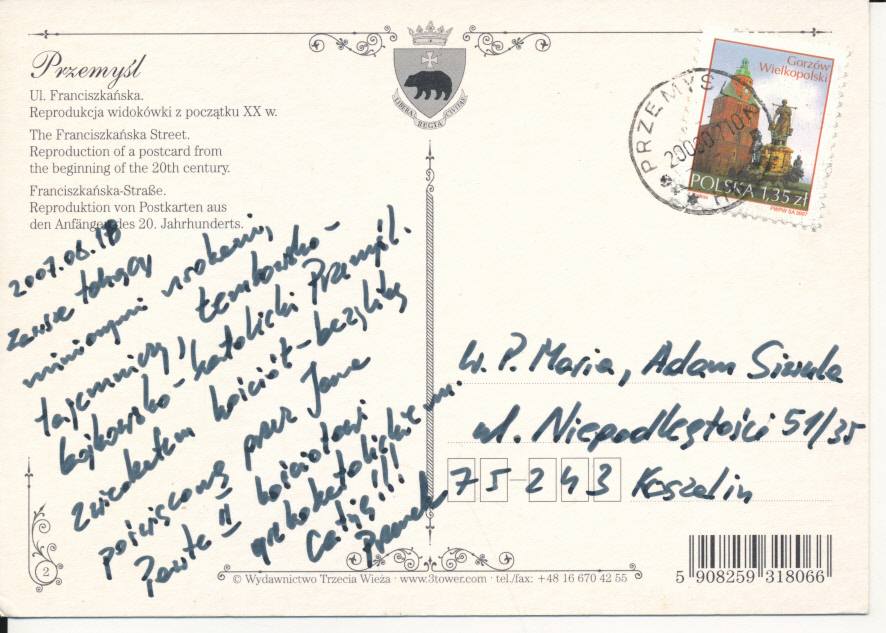 Przemyśl
Ul. Franciszkańska.
Reprodukcja widokówki z początku XX w.
The Franciszkańska Street.
Reproduction of a postcard from
the beginning of the 20th century.
Franciszkańska-Straße.
Reproduktion von Postkarten aus
den Anfängen des 20. Jahrhunderts.
LIBERA REGIA CIVITAS
Gorzów
Wielkopolski
POLSKA 1,35 zł
PWPW SA 2007
PRZEMYŚ
2007.08.18
Zawsze
minionymi urokami,
tajemniczy, łemkowsko-
bojkowsko-katolicki Przemyśl.
Zwiedziłem kościół-bazylikę
poświęconą przez Jana
Pawła II kościołowi
grekokatolickiemu.
Całuję!!!
Franek
W. P. Maria, Adam
ul. Niepodległości 51/35
75-243 Koszalin
2
© Wydawnictwo Trzecia Wieża · www.3tower.com · tel./fax: +48 16 670 42 55
5 908259 318066